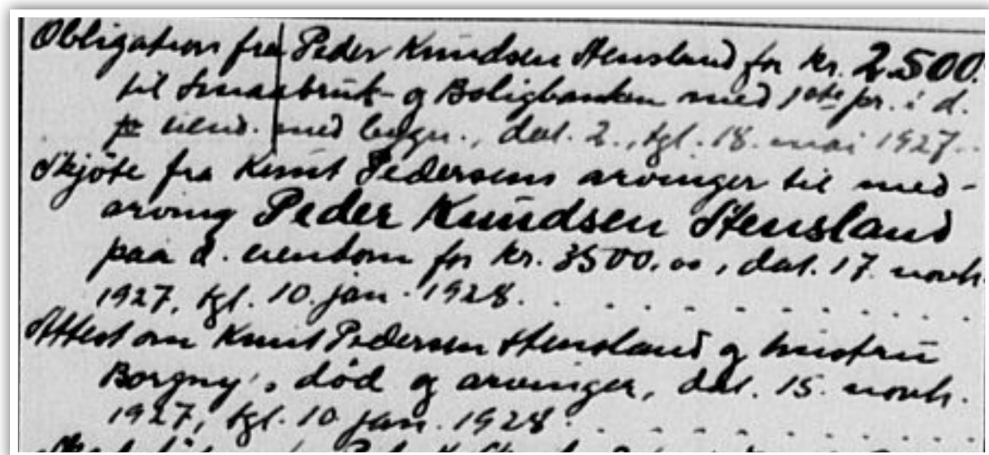 Obligation fra Peder Knudsen Stensland for kr. 2.500.
til Smaabruk- og Boligbanken med 1ste pr. i d.
eiend. med bygn., dat. 2., tgl. 18. mai 1927.
Skjöte fra Knut Pedersens arvinger til med-
arving Peder Knudsen Stensland
paa d. eiendom for kr. 3500.00, dat. 17. novh.
1927, tgl. 10. jan. 1928.
Attest om Knut Pedersen Stensland og hustru
Borgny's död og arvinger, dat. 15. novh.
1927, tgl. 10. jan. 1928.